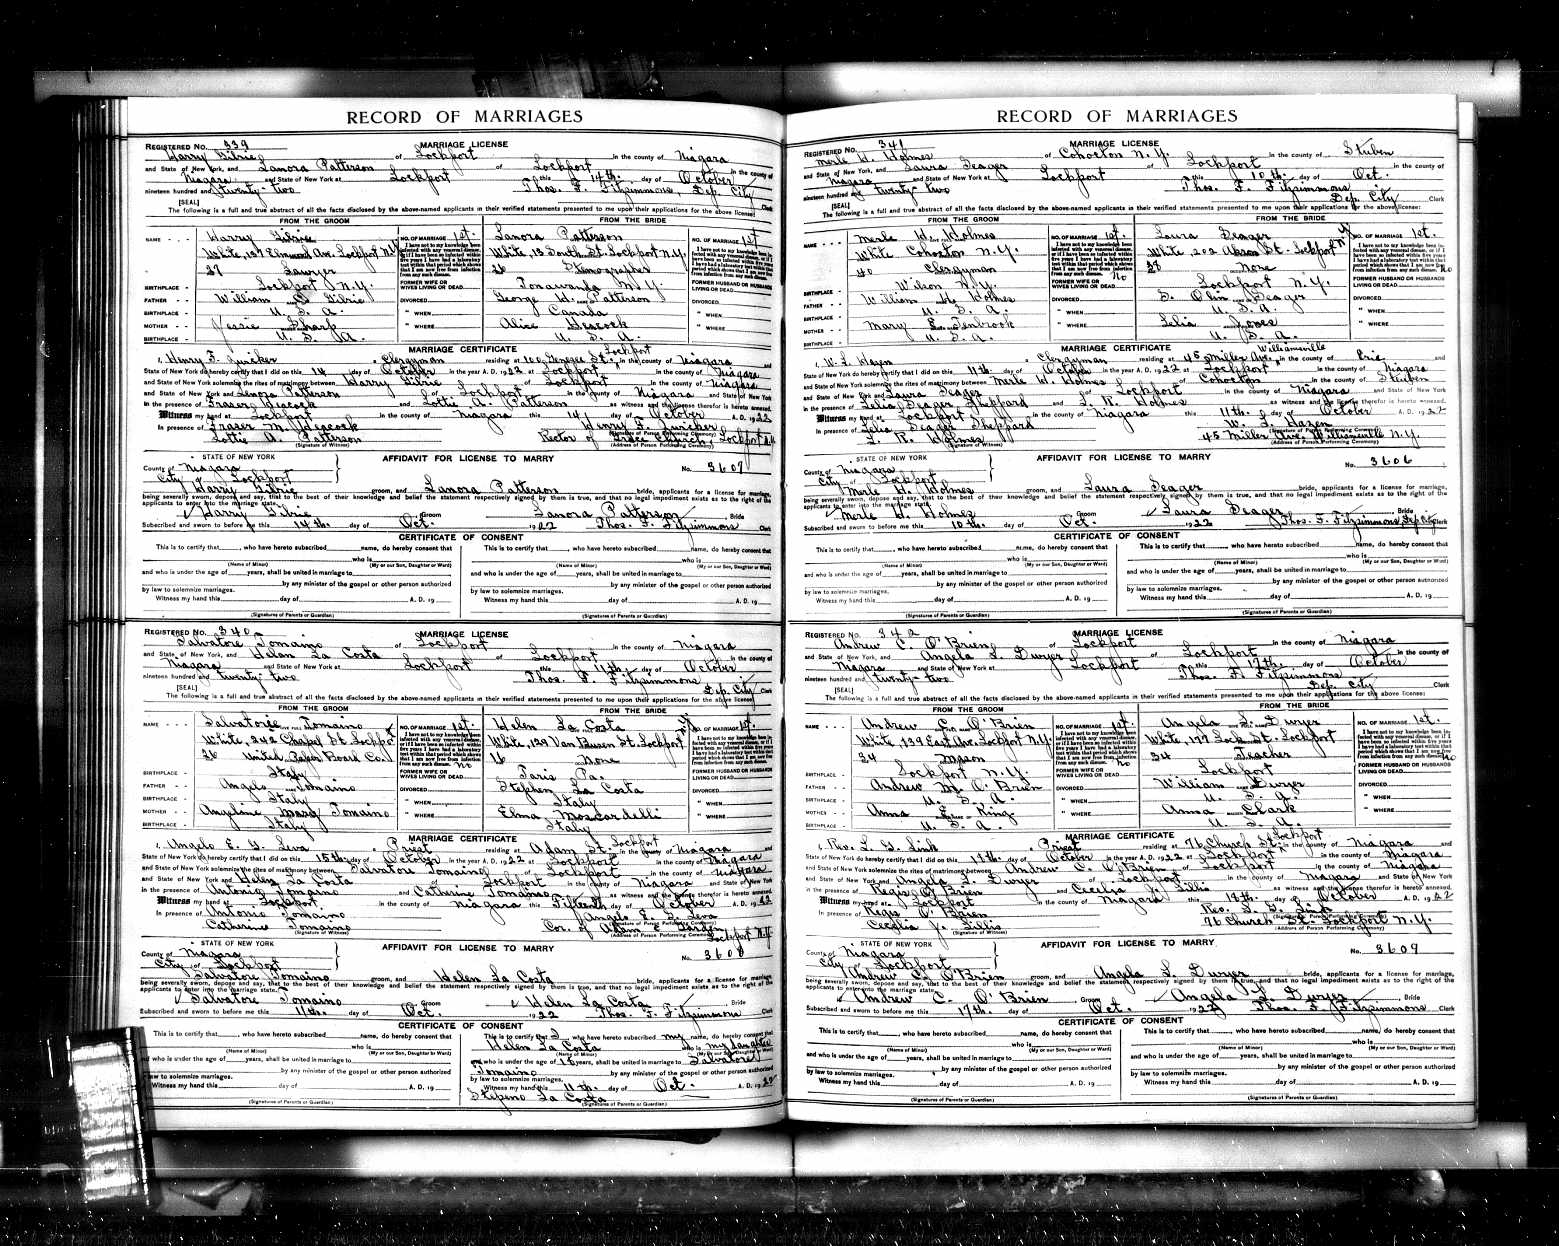 RECORD OF MARRIAGES
REGISTERED No. 339 MARRIAGE LICENSE
Harry Gilrie of Lockport in the county of Niagara
and State of New York, and Lanora Patterson of Lockport in the county of
Niagara and State of New York at Lockport this 14th. day of October
nineteen hundred and twenty-two Thos. F. Fitzsimmons, Dep. City Clerk
[SEAL]
The following is a full and true abstract of all the facts disclosed by the above-named applicants in their verified statements presented to me upon their applications for the above license:
FROM THE GROOM FROM THE BRIDE
NAME Harry Gilrie NO. OF MARRIAGE 1st. Lanora Patterson NO. OF MARRIAGE 1st
White, Elmwood Ave. Lockport N.Y. White, 13 South St. Lockport N.Y.
27 Lawyer 26 Stenographer
I have not to my knowledge been infected with any venereal disease, or if I have been so infected within five years I have had a laboratory test within that period which shows that I am now free from infection from any such disease.
BIRTHPLACE Lockport N.Y. FORMER WIFE OR WIVES LIVING OR DEAD Tonawanda N.Y. FORMER HUSBAND OR HUSBANDS LIVING OR DEAD
FATHER William Gilrie DIVORCED George W. Patterson DIVORCED
BIRTHPLACE U. S. A. " WHEN Canada " WHEN
MOTHER Jessie Sharp " WHERE Alice Heacock " WHERE
BIRTHPLACE U. S. A. U. S. A.
MARRIAGE CERTIFICATE
I, Henry F. Zwicker a Clergyman residing at 100 Genesee St., Lockport in the county of Niagara and
State of New York do hereby certify that I did on this 14 day of October in the year A. D. 1922 at Lockport in the county of Niagara
and State of New York solemnize the rites of matrimony between Harry Gilrie of Lockport in the county of Niagara
and State of New York and Lenora Patterson of Lockport in the county of Niagara and State of New York
in the presence of Fraser Heacock and Lottie A. Patterson as witness and the license therefor is hereto annexed.
Witness my hand at Lockport in the county of Niagara this 14 day of October A. D. 1922
In presence of Fraser M. Heacock Henry F. Zwicker
(Signature of Person Performing Ceremony)
Lottie A. Patterson Rector of Grace Church, Lockport N.Y.
(Signature of Witness) (Address of Person Performing Ceremony)
STATE OF NEW YORK AFFIDAVIT FOR LICENSE TO MARRY No. 3607
County of Niagara
City of Lockport
Harry Gilrie groom, and Lanora Patterson bride, applicants for a license for marriage,
being severally sworn, depose and say, that to the best of their knowledge and belief the statement respectively signed by them is true, and that no legal impediment exists as to the right of the
applicants to enter into the marriage state.
Harry Gilrie Groom Lanora Patterson Bride
Subscribed and sworn to before me this 14th. day of Oct. 1922 Thos. F. Fitzsimmons Clerk
CERTIFICATE OF CONSENT
This is to certify that , who have hereto subscribed name, do hereby consent that
who is
(Name of Minor) (My or our Son, Daughter or Ward)
and who is under the age of years, shall be united in marriage to
by any minister of the gospel or other person authorized
by law to solemnize marriages.
Witness my hand this day of A. D. 19
(Signatures of Parents or Guardian)
This is to certify that , who have hereto subscribed name, do hereby consent that
who is
(Name of Minor) (My or our Son, Daughter or Ward)
and who is under the age of years, shall be united in marriage to
by any minister of the gospel or other person authorized
by law to solemnize marriages.
Witness my hand this day of A. D. 19
(Signatures of Parents or Guardian)
REGISTERED No. 340 MARRIAGE LICENSE
Salvatore Tomaino of Lockport in the county of Niagara
and State of New York, and Helen La Costa of Lockport in the county of
Niagara and State of New York at Lockport this 11th. day of October
nineteen hundred and twenty-two Thos. F. Fitzsimmons
[SEAL] Dep. City Clerk
The following is a full and true abstract of all the facts disclosed by the above-named applicants in their verified statements presented to me upon their applications for the above license:
FROM THE GROOM FROM THE BRIDE
NAME Salvatore Tomaino NO. OF MARRIAGE 1st. Helen La Costa NO. OF MARRIAGE 1st.
White, 242 Chapel St. Lockport White, 129 Van Buren St. Lockport N.Y.
26 United Paper Board Co. 16 None
I have not to my knowledge been infected with any venereal disease, or if I have been so infected within five years I have had a laboratory test within that period which shows that I am now free from infection from any such disease. No
BIRTHPLACE Italy FORMER WIFE OR WIVES LIVING OR DEAD Paris Pa. FORMER HUSBAND OR HUSBANDS LIVING OR DEAD
FATHER Angelo Tomaino DIVORCED Stephen La Costa DIVORCED
BIRTHPLACE Italy " WHEN Italy " WHEN
MOTHER Angeline Tomaino " WHERE Elma Moscardelli " WHERE
BIRTHPLACE Italy Italy
MARRIAGE CERTIFICATE
I, Angelo E. G. Leva a Priest residing at Adam St. Lockport in the county of Niagara and
State of New York do hereby certify that I did on this 15th. day of October in the year A. D. 1922 at Lockport in the county of Niagara
and State of New York solemnize the rites of matrimony between Salvatore Tomaino of Lockport in the county of Niagara
and State of New York and Helen La Costa of Lockport in the county of Niagara and State of New York
in the presence of Antonio Tomaino and Catherine Tomaino as witness and the license therefor is hereto annexed.
Witness my hand at Lockport. in the county of Niagara this Fifteenth day of October A. D. 1922
In presence of Antonio Tomaino Angelo E. G. Leva
(Signature of Person Performing Ceremony)
Catherine Tomaino Cor. of Adam & Garden
(Signature of Witness) (Address of Person Performing Ceremony) Lockport N.Y.
STATE OF NEW YORK AFFIDAVIT FOR LICENSE TO MARRY No. 3608
County of Niagara
City of Lockport
Salvatore Tomaino groom, and Helen La Costa bride, applicants for a license for marriage,
being severally sworn, depose and say, that to the best of their knowledge and belief the statement respectively signed by them is true, and that no legal impediment exists as to the right of the
applicants to enter into the marriage state.
Salvatore Tomaino Groom Helen La Costa Bride
Subscribed and sworn to before me this 11th. day of Oct. 1922 Thos. F. Fitzsimmons Clerk
CERTIFICATE OF CONSENT
This is to certify that , who have hereto subscribed name, do hereby consent that
who is
(Name of Minor) (My or our Son, Daughter or Ward)
and who is under the age of years, shall be united in marriage to
by any minister of the gospel or other person authorized
by law to solemnize marriages.
Witness my hand this day of A. D. 19
(Signatures of Parents or Guardian)
This is to certify that I, who have hereto subscribed my name, do hereby consent that
Helen La Costa who is my daughter
(Name of Minor) (My or our Son, Daughter or Ward)
and who is under the age of 18 years, shall be united in marriage to Salvatore
Tomaino by any minister of the gospel or other person authorized
by law to solemnize marriages.
Witness my hand this 11th. day of Oct. A. D. 1922
Stefeno La Costa
(Signatures of Parents or Guardian)
RECORD OF MARRIAGES
REGISTERED No. 341 MARRIAGE LICENSE
Merle W. Holmes of Cohocton N.Y. in the county of Stuben
and State of New York, and Laura Seager of Lockport in the county of
Niagara and State of New York at Lockport this 10th. day of Oct.
nineteen hundred and twenty-two Thos. F. Fitzsimmons
[SEAL] Dep. City Clerk
The following is a full and true abstract of all the facts disclosed by the above-named applicants in their verified statements presented to me upon their applications for the above license:
FROM THE GROOM FROM THE BRIDE
NAME Merle W. Holmes NO. OF MARRIAGE 1st. Laura Seager NO. OF MARRIAGE 1st.
White Cohocton N.Y. White, 202 St. Lockport N.Y.
40 Clergyman 38 None
I have not to my knowledge been infected with any venereal disease, or if I have been so infected within five years I have had a laboratory test within that period which shows that I am now free from infection from any such disease. No
BIRTHPLACE Wilson N.Y. FORMER WIFE OR WIVES LIVING OR DEAD Lockport N.Y. FORMER HUSBAND OR HUSBANDS LIVING OR DEAD
FATHER William H. Holmes DIVORCED S. Olin Seager DIVORCED
BIRTHPLACE U. S. A. " WHEN U. S. A. " WHEN
MOTHER Mary E. Tenbrook " WHERE Lelia Jones " WHERE
BIRTHPLACE U. S. A. U. S. A.
MARRIAGE CERTIFICATE
I, W. L. Hazen a Clergyman residing at 45 Miller Ave., Williamsville in the county of Erie and
State of New York do hereby certify that I did on this 11th. day of October in the year A. D. 1922 at Lockport in the county of Niagara
and State of New York solemnize the rites of matrimony between Merle W. Holmes of Cohocton in the county of Steuben
and State of New York and Laura Seager of Lockport in the county of Niagara and State of New York
in the presence of Lelia Seager Sheppard and L. R. Holmes as witness and the license therefor is hereto annexed.
Witness my hand at Lockport in the county of Niagara this 11th. day of October A. D. 1922
In presence of Lelia Seager Sheppard W. L. Hazen
(Signature of Person Performing Ceremony)
L. R. Holmes 45 Miller Ave. Williamsville N.Y.
(Signature of Witness) (Address of Person Performing Ceremony)
STATE OF NEW YORK AFFIDAVIT FOR LICENSE TO MARRY No. 3606
County of Niagara
City of Lockport
Merle W. Holmes groom, and Laura Seager bride, applicants for a license for marriage,
being severally sworn, depose and say, that to the best of their knowledge and belief the statement respectively signed by them is true, and that no legal impediment exists as to the right of the
applicants to enter into the marriage state.
Merle W. Holmes Groom Laura Seager Bride
Subscribed and sworn to before me this 10th. day of Oct. 1922 Thos. F. Fitzsimmons, Dep City Clerk
CERTIFICATE OF CONSENT
This is to certify that , who have hereto subscribed name, do hereby consent that
who is
(Name of Minor) (My or our Son, Daughter or Ward)
and who is under the age of years, shall be united in marriage to
by any minister of the gospel or other person authorized
by law to solemnize marriages.
Witness my hand this day of A. D. 19
(Signatures of Parents or Guardian)
This is to certify that , who have hereto subscribed name, do hereby consent that
who is
(Name of Minor) (My or our Son, Daughter or Ward)
and who is under the age of years, shall be united in marriage to
by any minister of the gospel or other person authorized
by law to solemnize marriages.
Witness my hand this day of A. D. 19
(Signatures of Parents or Guardian)
REGISTERED No. 342 MARRIAGE LICENSE
Andrew C. O'Brien of Lockport in the county of Niagara
and State of New York, and Angela L. Dwyer of Lockport in the county of
Niagara and State of New York at Lockport this 17th. day of October
nineteen hundred and twenty-two Thos. F. Fitzsimmons
[SEAL] Dep. City Clerk
The following is a full and true abstract of all the facts disclosed by the above-named applicants in their verified statements presented to me upon their applications for the above license:
FROM THE GROOM FROM THE BRIDE
NAME Andrew C. O'Brien NO. OF MARRIAGE 1st Angela L. Dwyer NO. OF MARRIAGE 1st.
White, 139 East Ave. Lockport N.Y. White, 177 Lock St. Lockport
34 Mason 34 Teacher
I have not to my knowledge been infected with any venereal disease, or if I have been so infected within five years I have had a laboratory test within that period which shows that I am now free from infection from any such disease. No
BIRTHPLACE Lockport N.Y. FORMER WIFE OR WIVES LIVING OR DEAD Lockport FORMER HUSBAND OR HUSBANDS LIVING OR DEAD
FATHER Andrew M. O'Brien DIVORCED William Dwyer DIVORCED
BIRTHPLACE U. S. A. " WHEN U. S. A. " WHEN
MOTHER Anna E. King " WHERE Anna Clark " WHERE
BIRTHPLACE U. S. A. U. S. A.
MARRIAGE CERTIFICATE
I, Rev. L. G. Sink a Priest residing at 76 Church St., Lockport in the county of Niagara and
State of New York do hereby certify that I did on this 17th. day of October in the year A. D. 1922 at Lockport in the county of Niagara
and State of New York solemnize the rites of matrimony between Andrew C. O'Brien of Lockport in the county of Niagara
and State of New York and Angela L. Dwyer of Lockport in the county of Niagara and State of New York
in the presence of Regis O'Brien and Cecilia J. Lillis as witness and the license therefor is hereto annexed.
Witness my hand at Lockport in the county of Niagara this 17th. day of October A. D. 1922
In presence of Regis O'Brien Rev. L. G. Sink
(Signature of Person Performing Ceremony)
Cecilia J. Lillis 76 Church St. Lockport N.Y.
(Signature of Witness) (Address of Person Performing Ceremony)
STATE OF NEW YORK AFFIDAVIT FOR LICENSE TO MARRY No. 3609
County of Niagara
City of Lockport
Andrew C. O'Brien groom, and Angela L. Dwyer bride, applicants for a license for marriage,
being severally sworn, depose and say, that to the best of their knowledge and belief the statement respectively signed by them is true, and that no legal impediment exists as to the right of the
applicants to enter into the marriage state.
Andrew C. O'Brien Groom Angela L. Dwyer Bride
Subscribed and sworn to before me this 17th. day of Oct. 1922 Thos. F. Fitzsimmons Clerk
CERTIFICATE OF CONSENT
This is to certify that , who have hereto subscribed name, do hereby consent that
who is
(Name of Minor) (My or our Son, Daughter or Ward)
and who is under the age of years, shall be united in marriage to
by any minister of the gospel or other person authorized
by law to solemnize marriages.
Witness my hand this day of A. D. 19
(Signatures of Parents or Guardian)
This is to certify that , who have hereto subscribed name, do hereby consent that
who is
(Name of Minor) (My or our Son, Daughter or Ward)
and who is under the age of years, shall be united in marriage to
by any minister of the gospel or other person authorized
by law to solemnize marriages.
Witness my hand this day of A. D. 19
(Signatures of Parents or Guardian)